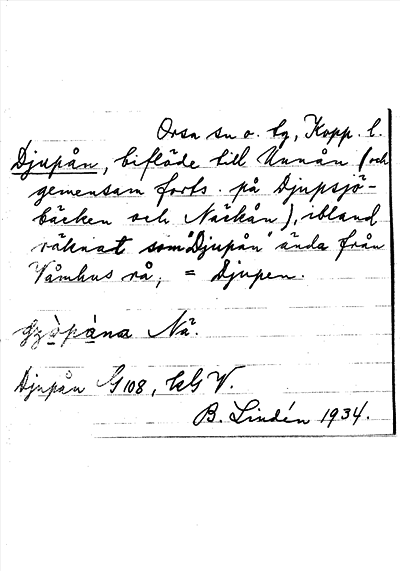 Orsa sn o. tg, Kopp. l.
Djupån, biflöde till Unnån (och
gemensam forts. på Djupsjö-
bäcken och Näckån), ibland
räknat som "Djupån" ända från
Våmhus rå, = Djupen.
Nä.
Djupån G 108, V.
B. Lindén 1934.